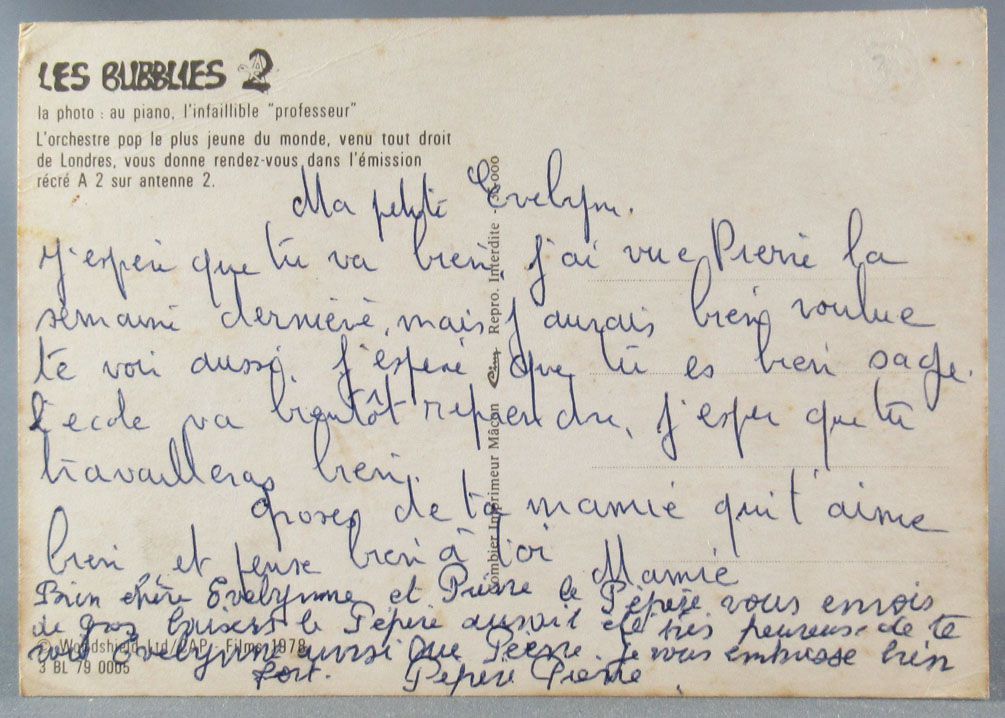 LES BUBBLIES 2
la photo : au piano, l'infaillible "professeur"
L'orchestre pop le plus jeune du monde, venu tout droit
de Londres, vous donne rendez-vous dans l'émission
récré A 2 sur antenne 2.
Ma petite Evelyne.
J'espere que tu va bien, j'ai vue Pierre la
semaine dernière, mais j'aurais bien voulue
te voir aussi. J'espère que tu es bien sage.
l'ecole va bientôt reprendre, j'espere que tu
travailleras bien.
Groses de ta mamie qui t'aime
bien et pense bien à toi
Mamie
Bien chère Evelynne et Pierre le Pépère vous envois
de gros baisers le Pépère auroit été très heureuse de te
voir Evelynne aussi que Pierre. Je vous embrasse bien
fort. Pépère Pierre
Combier Imprimeur Mâcon Cim Repro. Interdite
© Woodshield Ltd/CAP - Films 1978
3 BL 79 0005